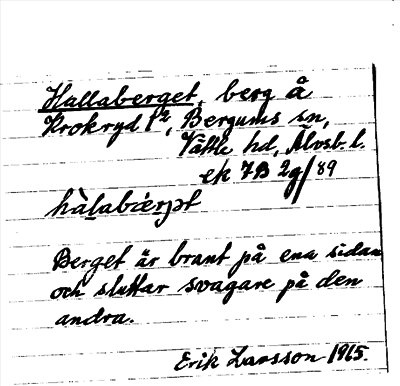 Hallaberget, berg å
Krokryd 1², Bergums sn,
Vättle hd, Älvsb. l.
ek 7B 2g/89
Berget är brant på ena sidan
och sluttar svagare på den
andra.
Erik Larsson 1965.